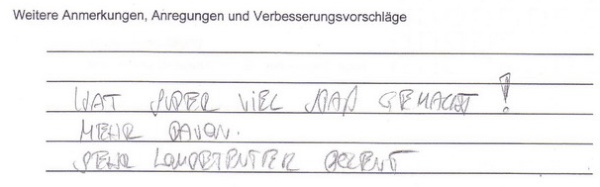 Weitere Anmerkungen, Anregungen und Verbesserungsvorschläge
HAT SUPER VIEL SPAß GEMACHT!
MEHR DAVON.
SEHR KOMPETENTER DOZENT